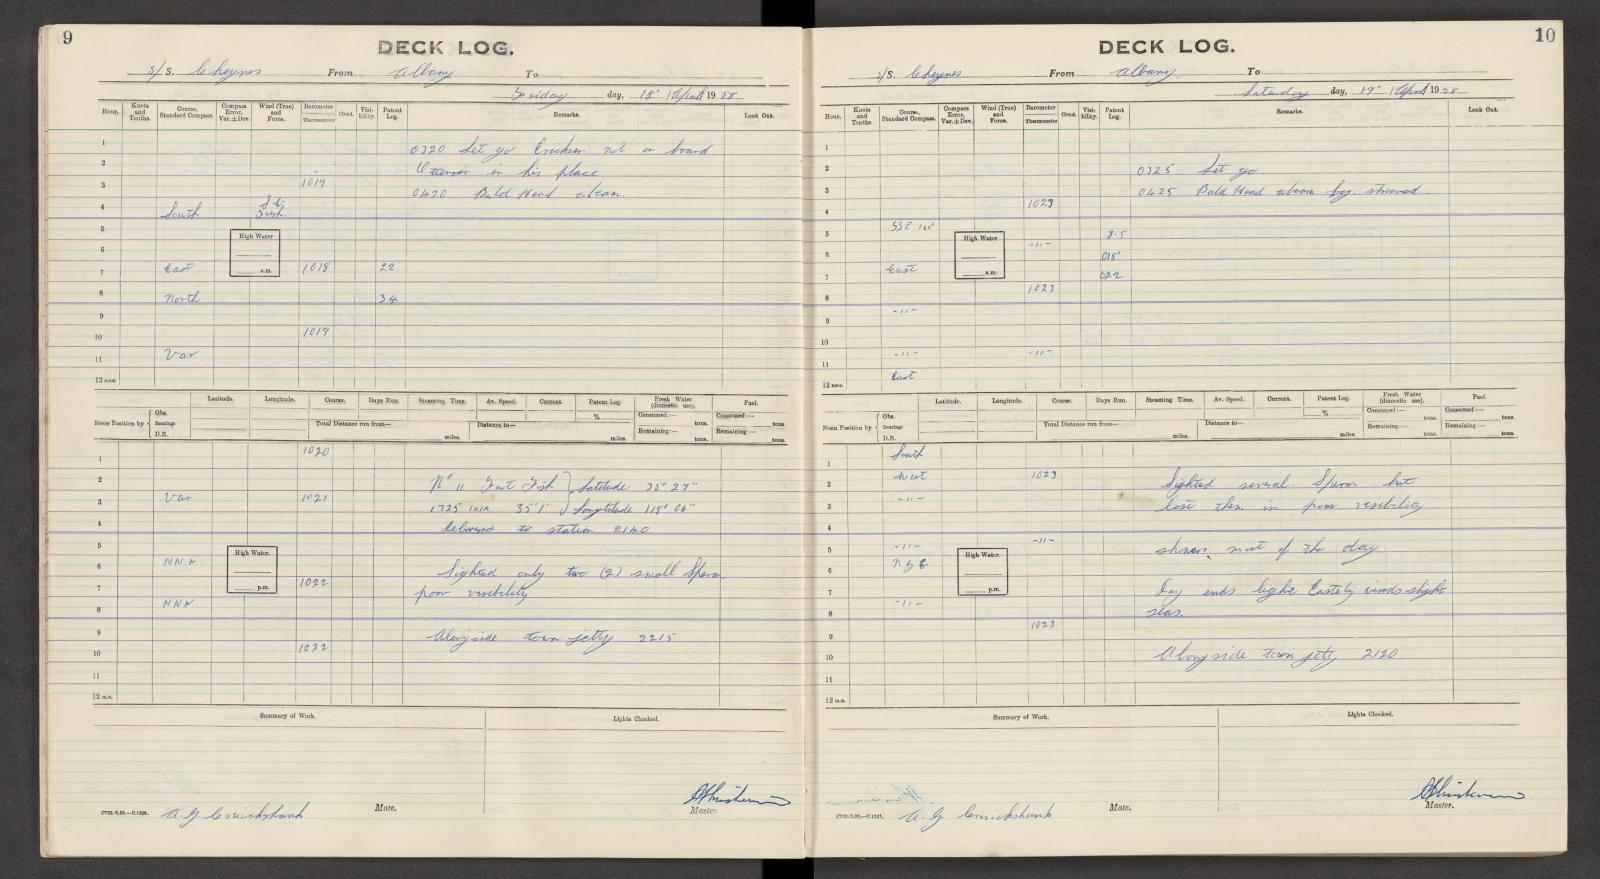 9
DECK LOG.
s/S. Cheynes From Albany To
Friday day, 18th April 1958
Hour. Knots and Tenths. Course, Standard Compass. Compass Error, Var. ± Dev. Wind (True) and Force. Barometer Thermometer Cloud. Visibility. Patent Log. Remarks. Look Out.
1 0320 Let go Erickson not on board
2 in his place
3 1019 0420 Bald Head abeam.
4 South
5 High Water
6
7 East a.m. 1018 22
8 North 34
9
10 1019
11 Var
12 noon
Latitude. Longitude. Course. Days Run. Steaming Time. Av. Speed. Current. Patent Log. Fresh Water (domestic use). Fuel.
Noon Position by Obs. Bearings D.R. % Consumed:— tons. Consumed:— tons.
Total Distance run from— miles. Distance to— miles. Remaining:— tons. Remaining:— tons.
1 1020
2 No 11 Fast Fish } Latitude 35° 24"
3 Var 1021 1735 35'1" } Longitude 118° 06"
4 delivered to station 2140
5 High Water.
6 NNW Sighted only two (2) small Sperm.
7 p.m. 1022 poor visibility
8 NNW
9 Alongside town jetty 2215
10 1022
11
12 m.n.
Summary of Work. Lights Checked.
A. G. Cruickshank Mate. Master.
10
DECK LOG.
s/S. Cheynes From Albany To
Saturday day, 19th April 1958
Hour. Knots and Tenths. Course, Standard Compass. Compass Error, Var. ± Dev. Wind (True) and Force. Barometer Thermometer Cloud. Visibility. Patent Log. Remarks. Look Out.
1
2 0325 Let go
3 0425 Bald Head abeam log streamed.
4 1023
5 SSE 160° High Water 8.5
6 -"- 015
7 East a.m. 022
8 1023
9 -"-
10
11 -"- -"-
12 noon East
Latitude. Longitude. Course. Days Run. Steaming Time. Av. Speed. Current. Patent Log. Fresh Water (domestic use). Fuel.
Noon Position by Obs. Bearings D.R. % Consumed:— tons. Consumed:— tons.
Total Distance run from— miles. Distance to— miles. Remaining:— tons. Remaining:— tons.
1 South
2 West 1023 Sighted several Sperm but
3 -"- lost them in poor visibility
4
5 -"- High Water. -"- showers most of the day.
6 NbE
7 p.m. Day ends light Easterly winds slight
8 -"- seas.
9 1023
10 Alongside town jetty 2120
11
12 m.n.
Summary of Work. Lights Checked.
A. G. Cruickshank Mate. Master.